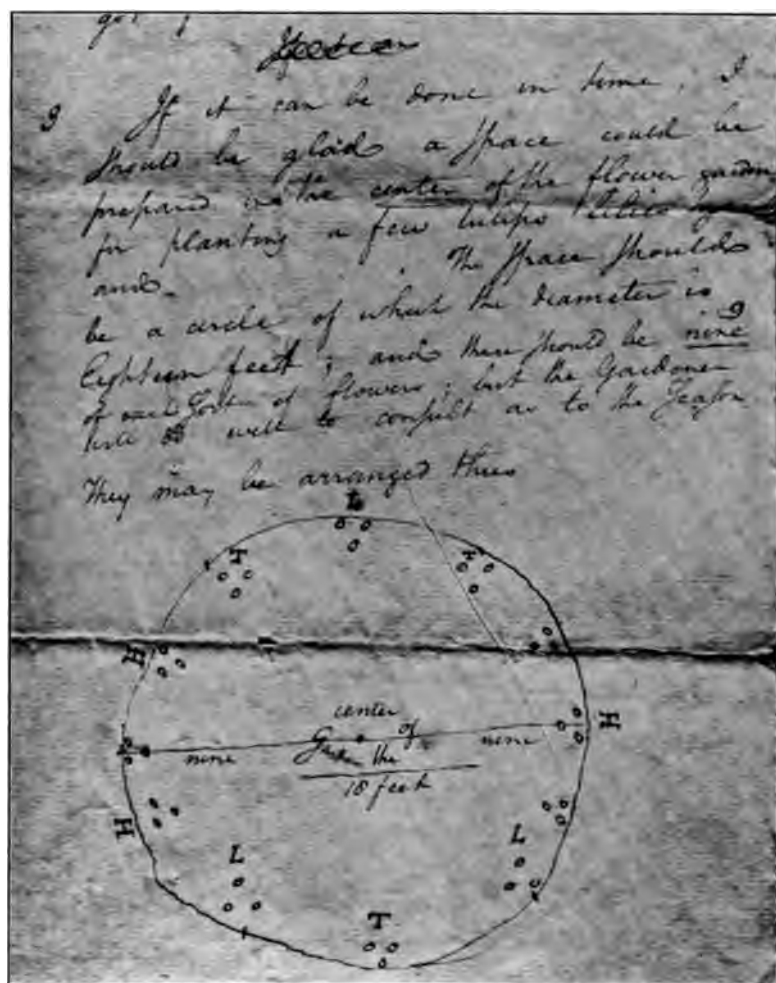 9 If it can be done in time, I
should be glad a space could be
prepared in the center of the flower garden
for planting a few tulips lilies
and The space should
be a circle of which the diameter is
Eighteen feet; and there should be nine 9
of each sort of flowers; but the Gardener
will well to consult as to the Season
They may be arranged thus
L
T
T
H
H
center
of
nine Garden the nine
18 feet
H
L
L
T